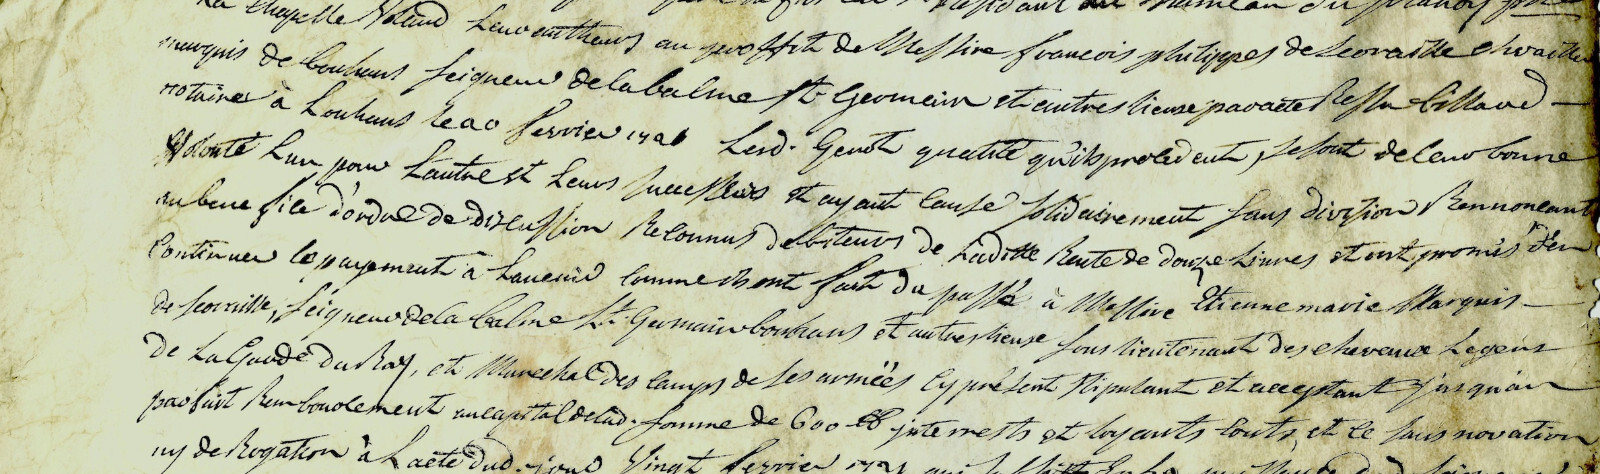 La Chapelle Voland
Leurs autheurs au proffit de Messire françois philippes de Scoraille chevalier
marquis de bouhans seigneur de la balme St. Germain et autres lieux par acte Ressu billard
notaire à Louhans le 20 fevrier 1721 Lesd. Genot qualité qu'ils procedent, se sont de leur bonne
Volonté L'un pour L'autre et Leurs successeurs et ayant Cause solidairement sans division Rennoncant
au benefice d'ordre de discussion Reconnus debiteurs de Laditte Rente de douze Livres et ont promis d'en
Continuer le payement à Lavenir comme ils ont fait du passé à Messire Etienne marie Marquis
de scoraille, seigneur de la balme St. Germain bouhans et autres lieux sous lieutenant des chevaux Legers
De La Garde du Roy, et Marechal des camps de ses armées cy présent stipulant et acceptant jusqu'au
parfait Remboursement au capital de lad. somme de 600 interrests et loyauts couts, et ce sans novation
ny de Rogation à L'acte dud. jour Vingt fevrier 1721